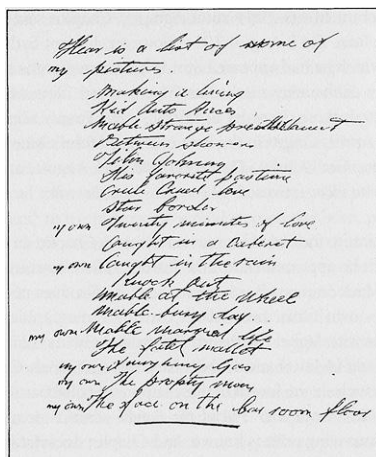 Hear is a list of some of
my pictures.
Making a living
Kid Auto Races
Mable strange predicament
Between showers
John Johnny
His favorite pasture
Cruel Cruel love
Star border
my own Twenty minutes of love
Caught in a Caberet
my own Caught in the rain
Knock out
Mable at the wheel
Mable busy day
my own Mable married life
The fatal mallet
my own Laughing Gas
my own The propty man
my own The face on the bar room floor